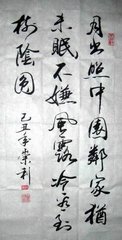 月出照中園鄰家猶
未眠不嫌風露冷看到
樹陰圓
己丑年